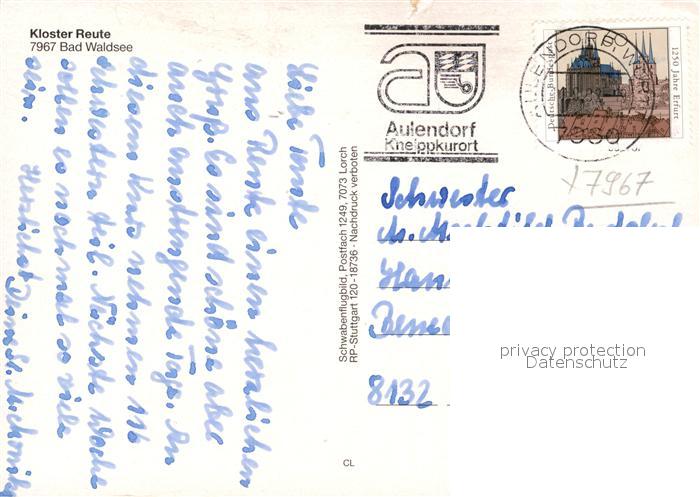 Kloster Reute
7967 Bad Waldsee
Liebe Tante
aus Reute einen herzlichen
Gruß. Es sind schöne aber
auch anstrengende Tage. An
diesem Kurs nehmen 116
Schwestern teil. Nächste Woche
sollen es nochmal so viele
sein.
Herzlichst Deine Sr. M.
Schwabenflugbild, Postfach 1249, 7073 Lorch
RP-Stuttgart 120-18736 - Nachdruck verboten
CL
au
Aulendorf
Kneippkurort
AULENDORF
Deutsche Bundespost
1250 Jahre Erfurt
7967
Schwester
M.
8132
privacy protection
Datenschutz